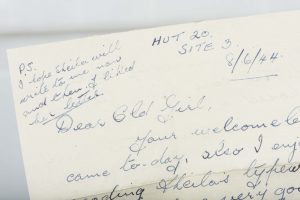 HUT 20.
SITE 3.
8/6/44.
P.S.
I hope Sheila will
write to me now
and then, I liked
her letter.
Dear Old Girl,
Your welcome le
came to-day, also I enj
reading Sheila's typew
very goo